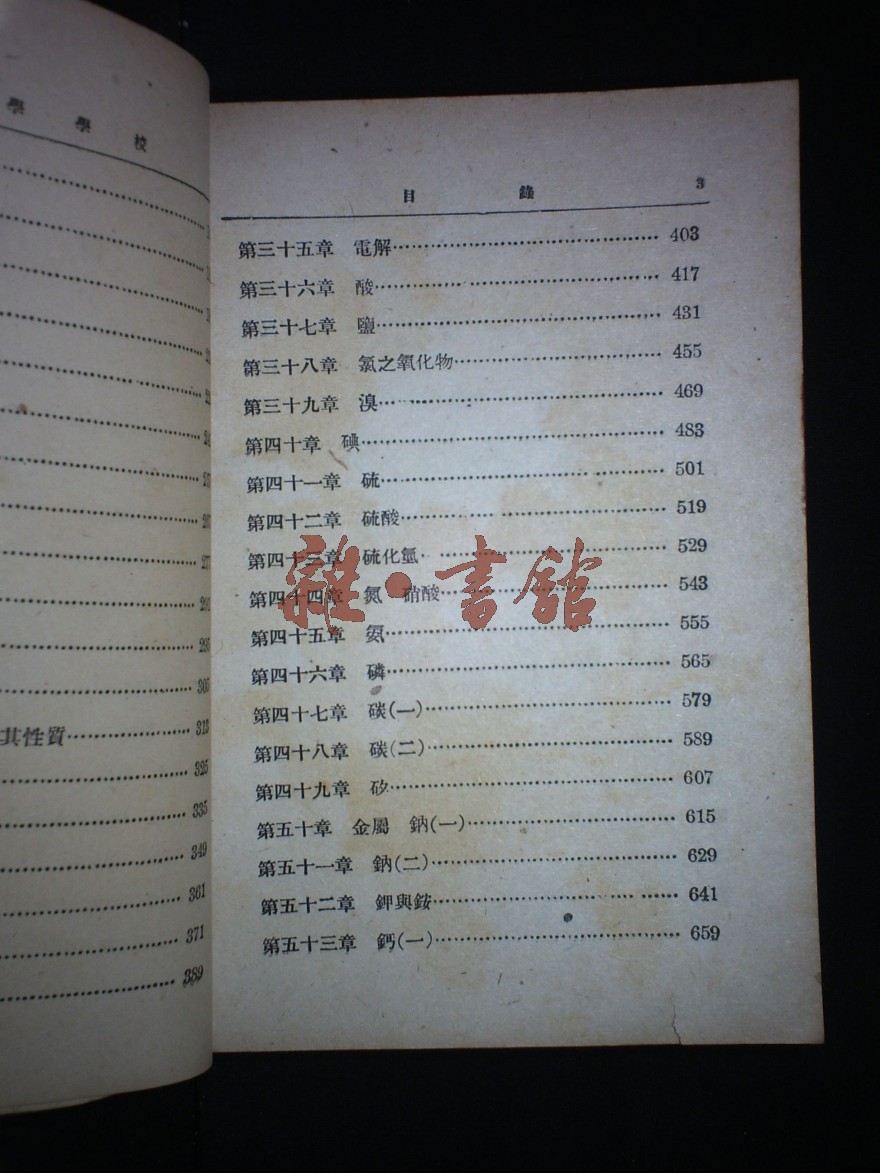 學 學 校
其性質 313
325
335
349
361
371
389
目 錄 3
第三十五章 電解 403
第三十六章 酸 417
第三十七章 鹽 431
第三十八章 氯之氧化物 455
第三十九章 溴 469
第四十章 碘 483
第四十一章 硫 501
第四十二章 硫酸 519
第四十三章 硫化氫 529
第四十四章 氮 硝酸 543
第四十五章 氨 555
第四十六章 磷 565
第四十七章 碳(一) 579
第四十八章 碳(二) 589
第四十九章 矽 607
第五十章 金屬 鈉(一) 615
第五十一章 鈉(二) 629
第五十二章 鉀與銨 641
第五十三章 鈣(一) 659
雜·書館